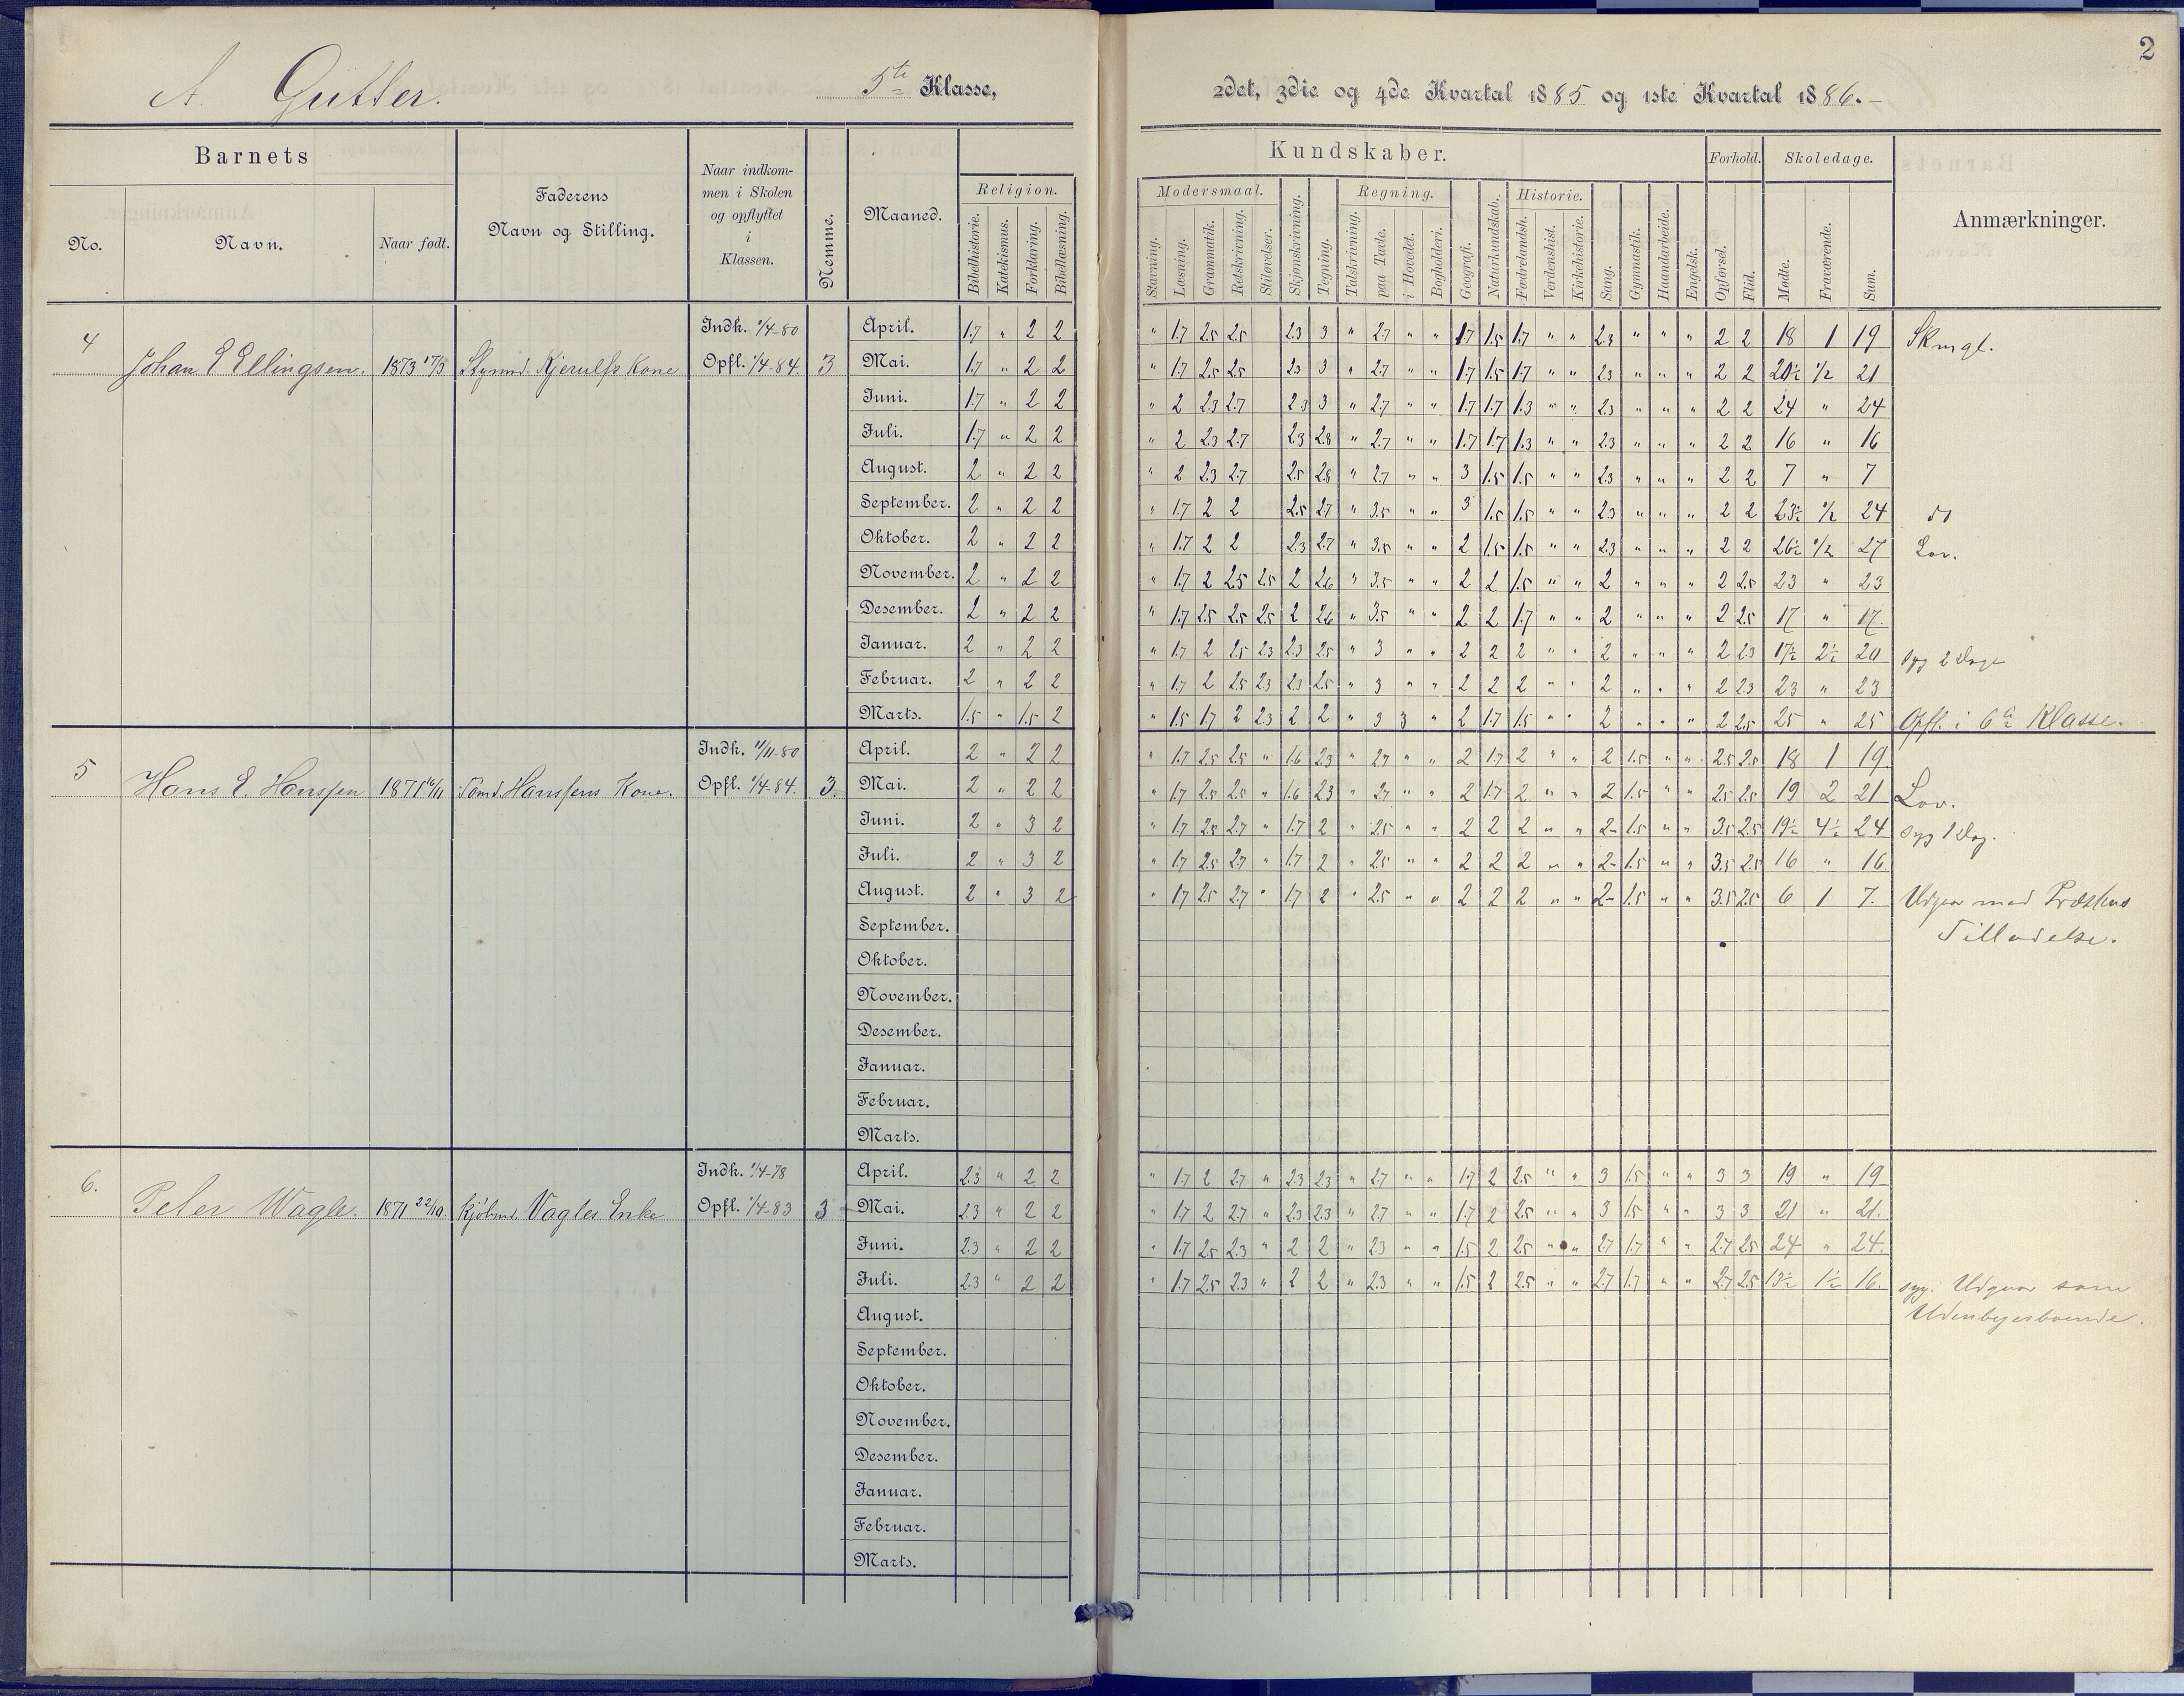 2
A. Gutter. 5te Klasse, 2det, 3die og 4de Kvartal 1885 og 1ste Kvartal 1886.
Barnets Kundskaber. Forhold. Skoledage.
No. Navn. Naar født. Faderens Navn og Stilling. Naar indkommen i Skolen og opflyttet i Klassen. Nemme. Maaned. Religion. Modersmaal. Regning. Historie. Anmærkninger.
Bibelhistorie. Katekismus. Forklaring. Bibellæsning. Stavning. Læsning. Grammatik. Retskrivning. Stiløvelser. Skjønskrivning. Tegning. Talskrivning. paa Tavle. i Hovedet. Bogholderi. Geografi. Naturkundskab. Fædrelandsh. Verdenshist. Kirkehistorie. Sang. Gymnastik. Haandarbeide. Engelsk. Opførsel. Flid. Mødte. Fraværende. Sum.
4 Johan E Ellingsen. 1873 17/3 Kjerulfs Kone Indk. 1/4-80 Opfl. 1/4-84. 3
April. 1.7 " 2 2 " 1.7 2.5 2.5 2.3 3 " 2.7 " " 1.7 1.5 1.7 " " 2.3 " " " 2 2 18 1 19
Mai. 1.7 " 2 2 " 1.7 2.5 2.5 2.3 3 " 2.7 " " 1.7 1.5 1.7 " " 2.3 " " " 2 2 20½ ½ 21
Juni. 1.7 " 2 2 " 2 2.3 2.7 2.3 3 " 2.7 " " 1.7 1.7 1.3 " " 2.3 " " " 2 2 24 " 24
Juli. 1.7 " 2 2 " 2 2.3 2.7 2.3 2.8 " 2.7 " " 1.7 1.7 1.3 " " 2.3 " " " 2 2 16 " 16
August. 2 " 2 2 " 2 2.3 2.7 2.5 2.8 " 2.7 " " 3 1.5 1.5 " " 2.3 " " " 2 2 7 " 7
September. 2 " 2 2 " 1.7 2 2 2.5 2.7 " 3.5 " " 3 1.5 1.5 " " 2.3 " " " 2 2 23½ ½ 24
Oktober. 2 " 2 2 " 1.7 2 2 2.3 2.7 " 3.5 " " 2 1.5 1.5 " " 2.3 " " " 2 2 26½ ½ 27 Lov.
November. 2 " 2 2 " 1.7 2 2.5 2.5 2 2.6 " 3.5 " " 2 2 1.5 " " 2 " " " 2 2.5 23 " 23
Desember. 2 " 2 2 " 1.7 2.5 2.5 2.5 2 2.6 " 3.5 " " 2 2 1.7 " " 2 " " " 2 2.5 17 " 17.
Januar. 2 " 2 2 " 1.7 2 2.5 2.3 2.3 2.5 " 3 " " 2 2 2 " " 2 " " " 2 2.3 17½ 2½ 20 syg 2 Dage
Februar. 2 " 2 2 " 1.7 2 2.5 2.3 2.3 2.5 " 3 " " 2 2 2 " " 2 " " " 2 2.3 23 " 23
Marts. 1.5 " 1.5 2 " 1.5 1.7 2 2.3 2 2 " 3 3 " 2 1.7 1.5 " " 2 " " " 2 2.5 25 " 25 Opfl. i 6te Klasse.
5 Hans E. Hanssen 1871 Hanssens Kone. Indk. 1/11-80 Opfl. 1/4-84. 3.
April. 2 " 2 2 " 1.7 2.5 2.5 " 1.6 2.3 " 2.7 " " 2 1.7 2 " " 2 1.5 " " 2.5 2.5 18 1 19.
Mai. 2 " 2 2 " 1.7 2.5 2.5 " 1.6 2.3 " 2.7 " " 2 1.7 2 " " 2 1.5 " " 2.5 2.5 19 2 21 Lov.
Juni. 2 " 3 2 " 1.7 2.5 2.7 " 1.7 2 " 2.5 " " 2 2 2 " " 2- 1.5 " " 3.5 2.5 19½ 4½ 24 syg 1 Dag.
Juli. 2 " 3 2 " 1.7 2.5 2.7 " 1.7 2 " 2.5 " " 2 2 2 " " 2- 1.5 " " 3.5 2.5 16 " 16
August. 2 " 3 2 " 1.7 2.5 2.7 " 1.7 2 " 2.5 " " 2 2 2 " " 2- 1.5 " " 3.5 2.5 6 1 7. Udgaar med Præstens
Tilladelse.
September.
Oktober.
November.
Desember.
Januar.
Februar.
Marts.
6. Peter Wagle. 1871 22/10. Kjøbmd. Vagles Enke Indk. 1/4-78 Opfl. 1/4-83 3
April. 2.3 " 2 2 " 1.7 2 2.7 " 2.3 2.3 " 2.7 " " 1.7 2 2.5 " " 3 1.5 " " 3 3 19 " 19
Mai. 2.3 " 2 2 " 1.7 2 2.7 " 2.3 2.3 " 2.7 " " 1.7 2 2.5 " " 3 1.5 " " 3 3 21 " 21.
Juni. 2.3 " 2 2 " 1.7 2.5 2.3 " 2 2 " 2.3 " " 1.5 2 2.5 " " 2.7 1.7 " " 2.7 2.5 24 " 24.
Juli. 2.3 " 2 2 " 1.7 2.5 2.3 " 2 2 " 2.3 " " 1.5 2 2.5 " " 2.7 1.7 " " 2.7 2.5 1½ 16. syg. Udgaar som
Udenbyesboende.
August.
September.
Oktober.
November.
Desember.
Januar.
Februar.
Marts.